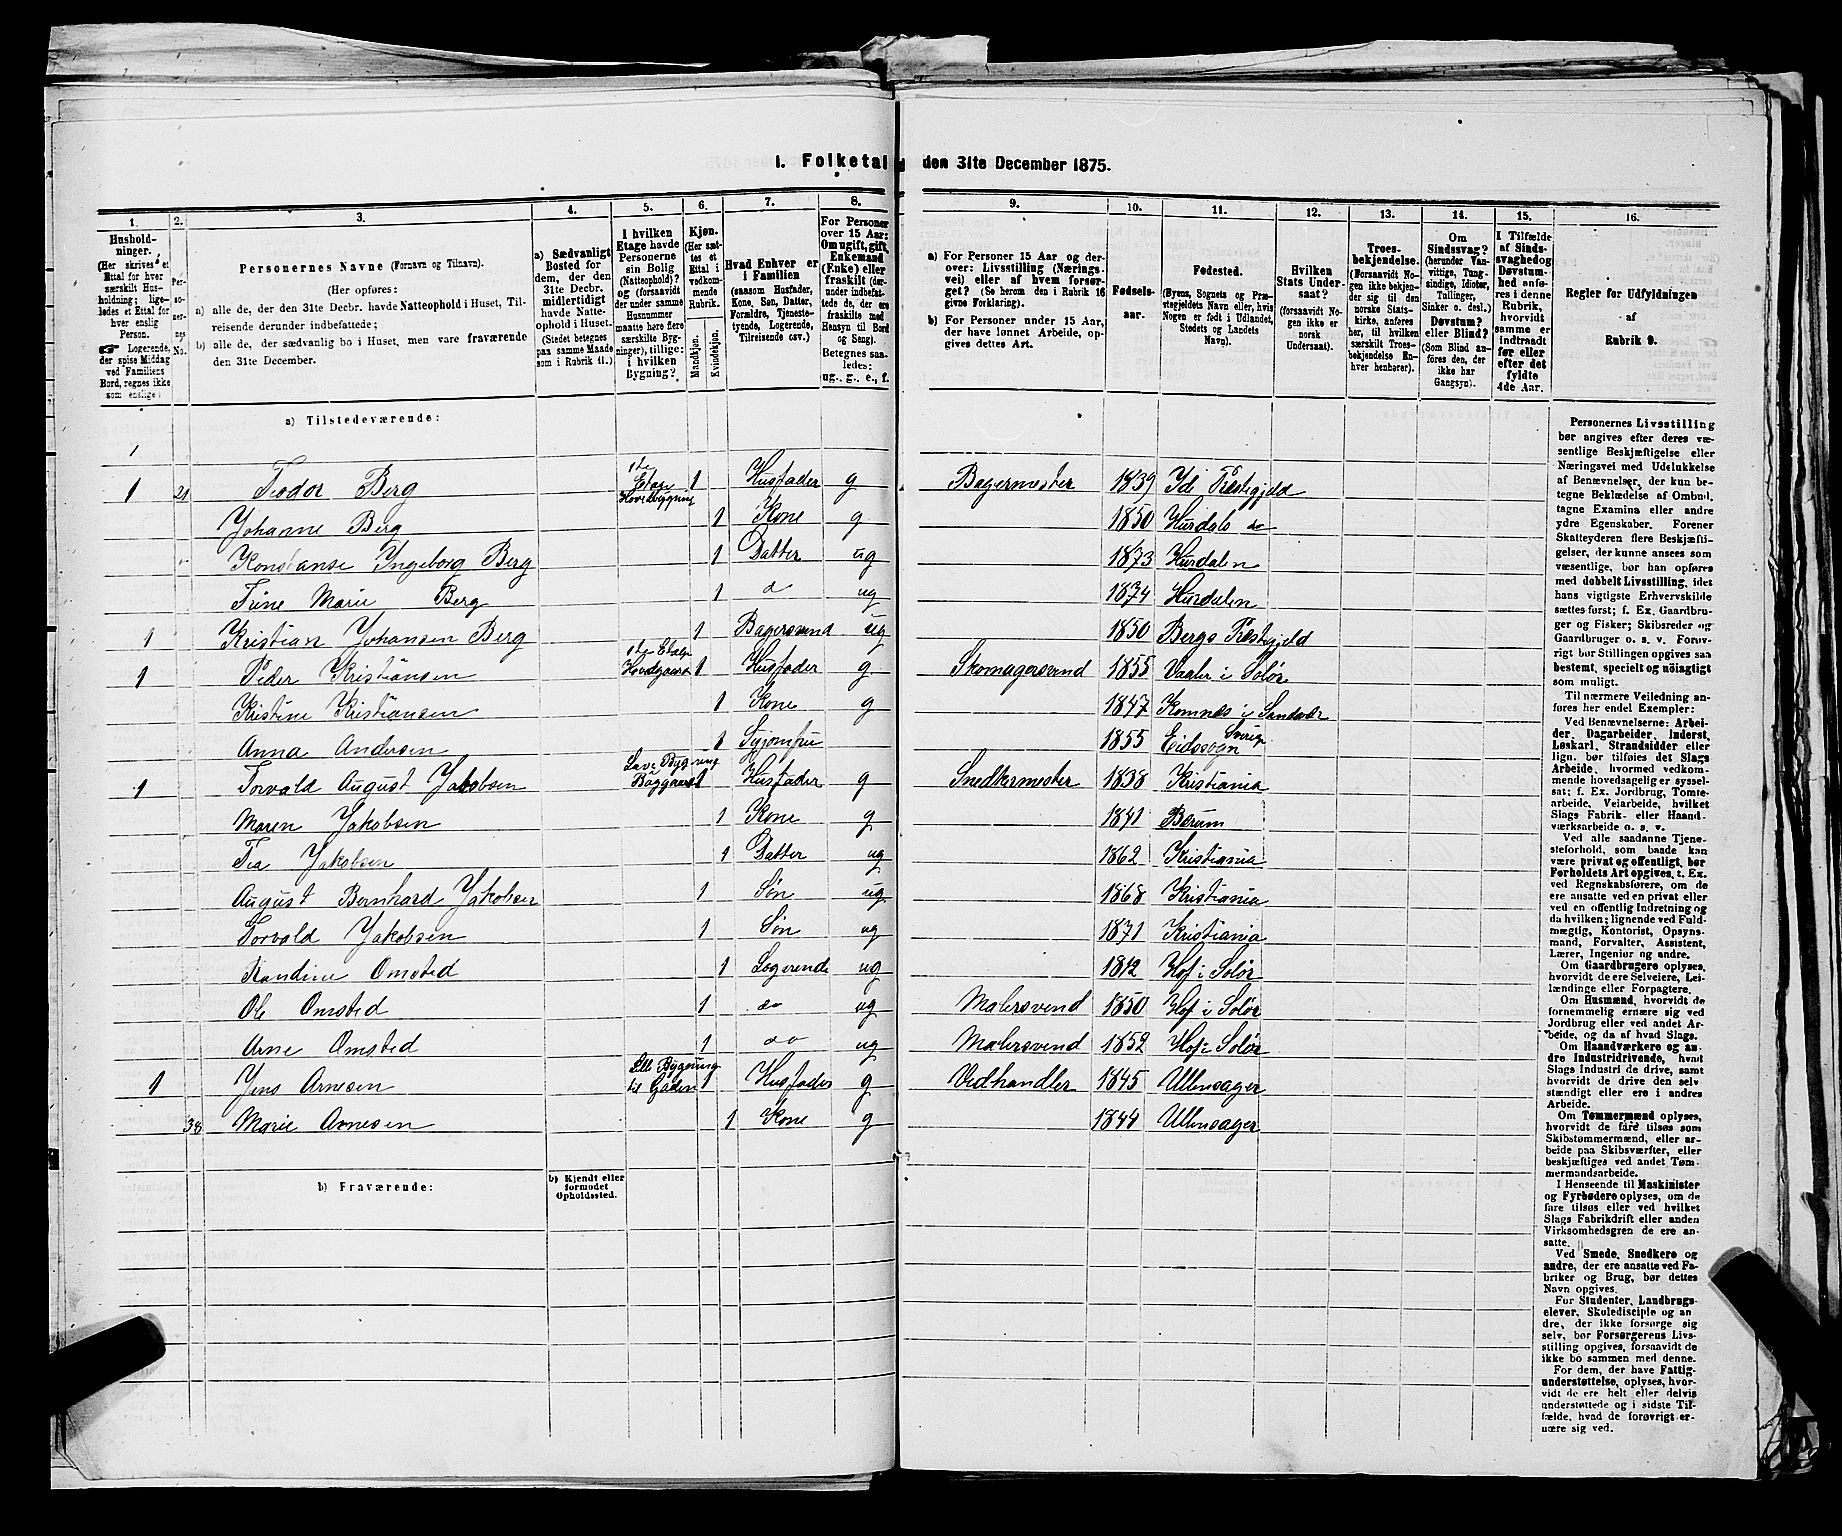 1. Folketal den 31te December 1875.
1. 2. 3. 4. 5. 6. 7. 8. 9. 10. 11. 12. 13. 14. 15. 16.
Hushold-
ninger.
(Her skrives et
Ettal for hver
særskilt Hus-
holdning; lige-
ledes et Ettal for
hver enslig
Person.
☞ Logerende,
der spise Middag
ved Familiens
Bord, regnes ikke
som enslige)
Per-
so-
ner-
nes
No.
Personernes Navne (Fornavn og Tilnavn).
(Her opføres:
a) alle de, der den 31te Decbr. havde Natteophold i Huset, Til-
reisende derunder indbefattede;
b) alle de, der sædvanlig bo i Huset, men vare fraværende
den 31te December.
a) Sædvanligt
Bosted for
dem, der den
31te Decbr.
midlertidigt
havde Natte-
ophold i Huset.
(Stedet betegnes
paa samme Maade
som i Rubrik 11.)
I hvilken
Etage havde
Personerne
sin Bolig
(Natteophold)?
og (forsaavidt
der under samme
Husnummer
maatte høre flere
særskilte Byg-
ninger), tillige:
i hvilken
Bygning?
Kjøn.
(Her sæt-
tes et
Ettal i
vedkom-
mende
Rubrik.
Mandkjøn.
Kvindekjøn.
Hvad Enhver er
i Familien
(saasom Husfader,
Kone, Søn, Datter,
Forældre, Tjeneste-
tyende, Logerende,
Tilreisende osv.)
For Personer
over 15 Aar:
Om ugift, gift,
Enkemand
(Enke) eller
fraskilt (der-
under indbefat-
tede de, der ere
fraskilte med
Hensyn til Bord
og Seng).
Betegnes saa-
ledes:
ug., g., e., f.
a) For Personer 15 Aar og der-
over: Livsstilling (Nærings-
vei) eller af hvem forsør-
get? (Se herom den i Rubrik 16
givne Forklaring).
b) For Personer under 15 Aar,
der have lønnet Arbeide, op-
gives dettes Art.
Fødsels-
aar.
Fødested.
(Byens, Sognets og Præ-
stegjeldets Navn eller, hvis
Nogen er født i Udlandet,
Stedets og Landets
Navn).
Hvilken
Stats Under-
saat?
(forsaavidt No-
gen ikke er
norsk
Undersaat).
Troes-
bekjendelse.
(Forsaavidt No-
gen ikke bekjen-
der sig til den
norske Stats-
kirke, anføres
her, til hvilken
særskilt Troes-
bekjendelse En-
hver henhører).
Om
Sindssvag?
(herunder Van-
vittige, Tung-
sindige, Idioter,
Tullinger,
Sinker o. desl.)
Døvstum?
eller Blind?
(Som Blind an-
føres den, der
ikke har
Gangsyn).
I Tilfælde
af Sinds-
svaghed og
Døvstum-
hed anfø-
res i denne
Rubrik,
hvorvidt
samme er
indtraadt
før eller
efter det
fyldte
4de Aar.
Regler for Udfyldningen
af
Rubrik 9.
a) Tilstedeværende:
1
1 21 Teodor Berg 1ste Etage Hovedbygning 1 Husfader g Bagermester 1839 Id Præstegjeld
Johanne Berg 1 Kone g 1850 Hurdals do
Konstanse Ingeborg Berg 1 Datter ug 1873 Hurdalen
Trine Marie Berg 1 do ug 1874 Hurdalen
1 Kristian Johansen Berg 1 Bagersvend ug 1850 Bergs Præstegjeld
1 Peder Kristiansen 1ste Etage Hovedgaard 1 Husfader g Skomagersvend 1855 Vaaler i Solør
Kristine Kristiansen 1 Kone g 1847 Komnes i Sandsvær
Anna Andersen 1 Syjomfru 1855 Eidssogn Sverige
1 Torvald August Jakobsen Lave Bygning Baggaard 1 Husfader g Snedkermester 1838 Kristiania
Maren Jakobsen 1 Kone g 1841 Berum
Tea Jakobsen 1 Datter ug 1862 Kristiania
August Bernhard Jakobsen 1 Søn ug 1868 Kristiania
Torvald Jakobsen 1 Søn ug 1871 Kristiania
Randine Omsted 1 Logerende ug Hof i Solør
Ole Omsted 1 do ug Malersvend 1850 Hof i Solør
Arne Omsted 1 do ug Malersvend 1852 Hof i Solør
1 Jens Arnesen Bygning til Gaden 1 Husfader g Vedhandler 1845 Ullensager
38 Marie Arnesen 1 Kone g 1844 Ullensager
b) Fraværende:
b) Kjendt eller
formodet
Opholdssted.
Personernes Livsstilling
bør angives efter deres væ-
sentlige Beskjæftigelse eller
Næringsvei med Udelukkelse
af Benævnelser, der kun be-
tegne Beklædelse af Ombud,
tagne Examina eller andre
ydre Egenskaber. Forener
Skatteyderen flere Beskjæfti-
gelser, der kunne ansees som
væsentlige, bør han opføres
med dobbelt Livsstilling, idet
hans vigtigste Erhvervskilde
sættes først; f. Ex. Gaardbru-
ger og Fisker; Skibsreder og
Gaardbruger o. s. v. Forøv-
rigt bør Stillingen opgives saa
bestemt, specielt og nøiagtigt
som muligt.
Til nærmere Veiledning an-
føres her endel Exempler:
Ved Benævnelserne: Arbei-
der, Dagarbeider, Inderst,
Løskarl, Strandsidder eller
lign. bør tilføies det Slags
Arbeide, hvormed vedkom-
mende hovedsagelig er syssel-
sat; f. Ex. Jordbrug, Tomte-
arbeide, Veiarbeide, hvilket
Slags Fabrik- eller Haand-
værksarbeide o. s. v.
Ved alle saadanne Tjene-
steforhold, som baade kan
være privat og offentligt, bør
Forholdets Art opgives, t. Ex.
ved Regnskabsførere, om de
ere ansatte ved en privat eller
ved en offentlig Indretning og
da hvilken; lignende ved Fuld-
mægtig, Kontorist, Opsyns-
mand, Forvalter, Assistent,
Lærer, Ingeniør og andre.
Om Gaardbrugere oplyses,
hvorvidt de ere Selveiere, Lei-
lændinge eller Forpagtere.
Om Husmænd, hvorvidt de
fornemmelig ernære sig ved
Jordbrug eller ved andet Ar-
beide, og da af hvad Slags.
Om Haandværkere og an-
dre Industridrivende, hvad
Slags Industri de drive, samt
hvorvidt de drive den selv
stændigt eller ere i andres
Arbeide.
Om Tømmermænd oplyses,
hvorvidt de fare tilsøs som
Skibstømmermænd, eller ar-
beide paa Skibsværfter, eller
beskjæftiges ved andet Tøm-
mermandsarbeide.
I Henseende til Maskinister
og Fyrbødere oplyses, om de
fare tilsøs eller ved hvilket
Slags Fabrikdrift eller anden
Virksomhedsgren de ere an-
satte.
Ved Smede, Snedkere og
andre, der ere ansatte ved Fa-
briker og Brug, bør dettes
Navn opgives.
For Studenter, Landbrugs-
elever, Skoledisciple og an
dre, der ikke forsørge sig
selv, bør Forsørgerens Livs-
stilling opgives, forsaavidt de
ikke bo sammen med denne.
For dem, der have Fattig-
understøttelse, oplyses, hvor-
vidt de ere helt eller delvis
understøttede og i sidste Til-
fælde, hvad de forøvrigt er-
nære sig ved.